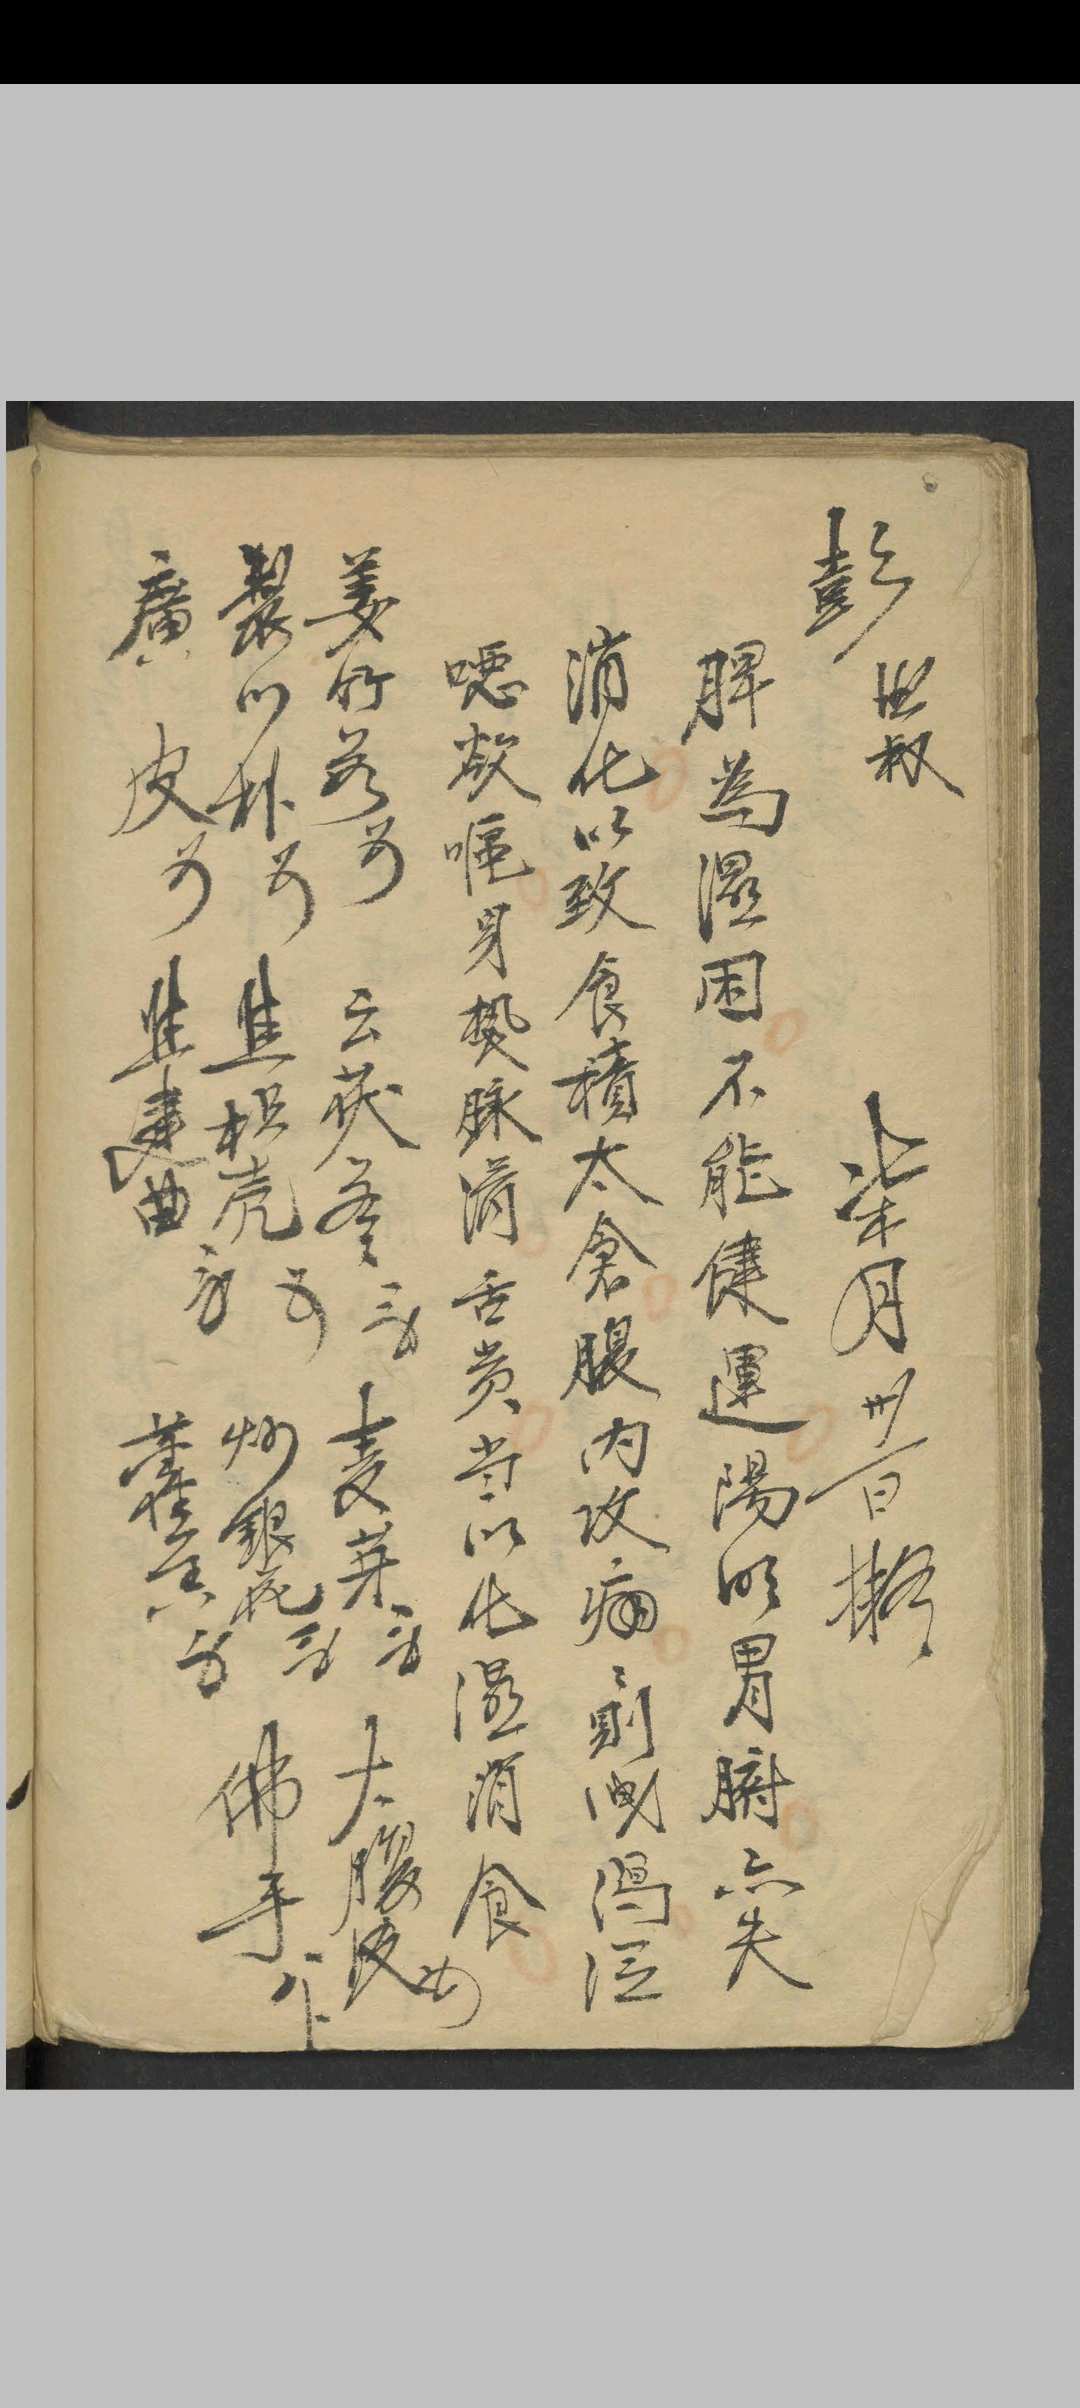 彭世叔 柒月卅一日擬
脾為濕困不能健運陽明胃腑亦失
消化以致食積太倉腹内攻痛痛則洩瀉泛
噁欲嘔身熱脉滑舌黄當以化濕消食
姜竹茹 云茯苓三 麦芽三 大腹皮
製川朴 焦枳壳 炒銀花三 佛手
廣皮 焦建曲三 藿香